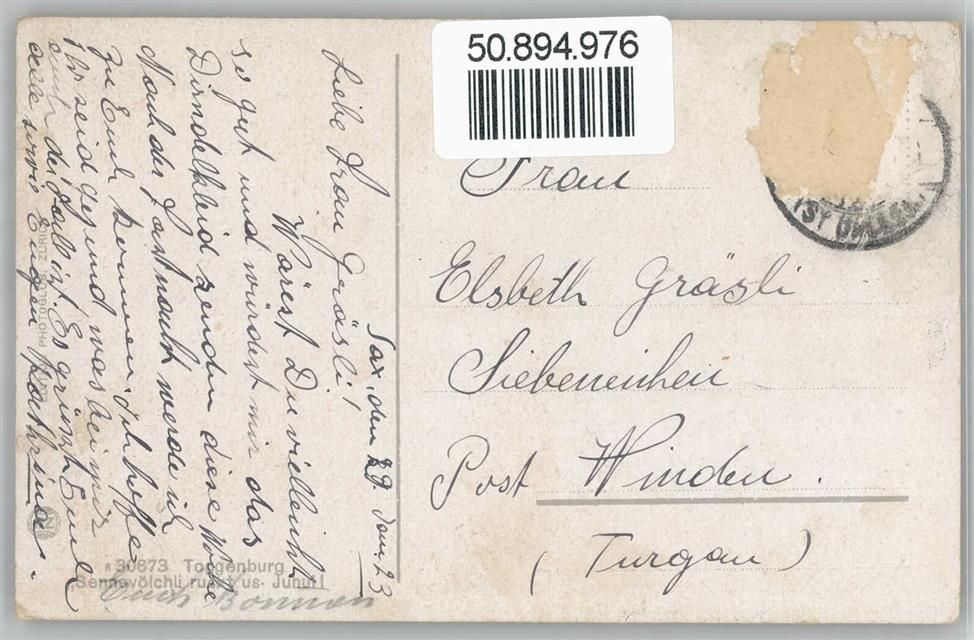 50.894.976
Sax, den 29. Jan. 23
Liebe Frau Gräsli!
Wärest Du viellenht
so gut und würdest mir das
Dirndelkleid senden diese Woche
Nach der Fastnacht werde ich
zu Euch kommen. Ich hoffe
Ihr seid gesund, was bei mir
auch der Fall ist. Es grüsst Euch
alle Eugen Kathrina.
Frau
Elsbeth Gräsli
Siebeneichen
Post Winden.
(Turgau)
ST GALLEN
30673 Toggenburg
Sennevölchli rueft üs- Juhu!!
PHOTOGLOB ZÜRICH